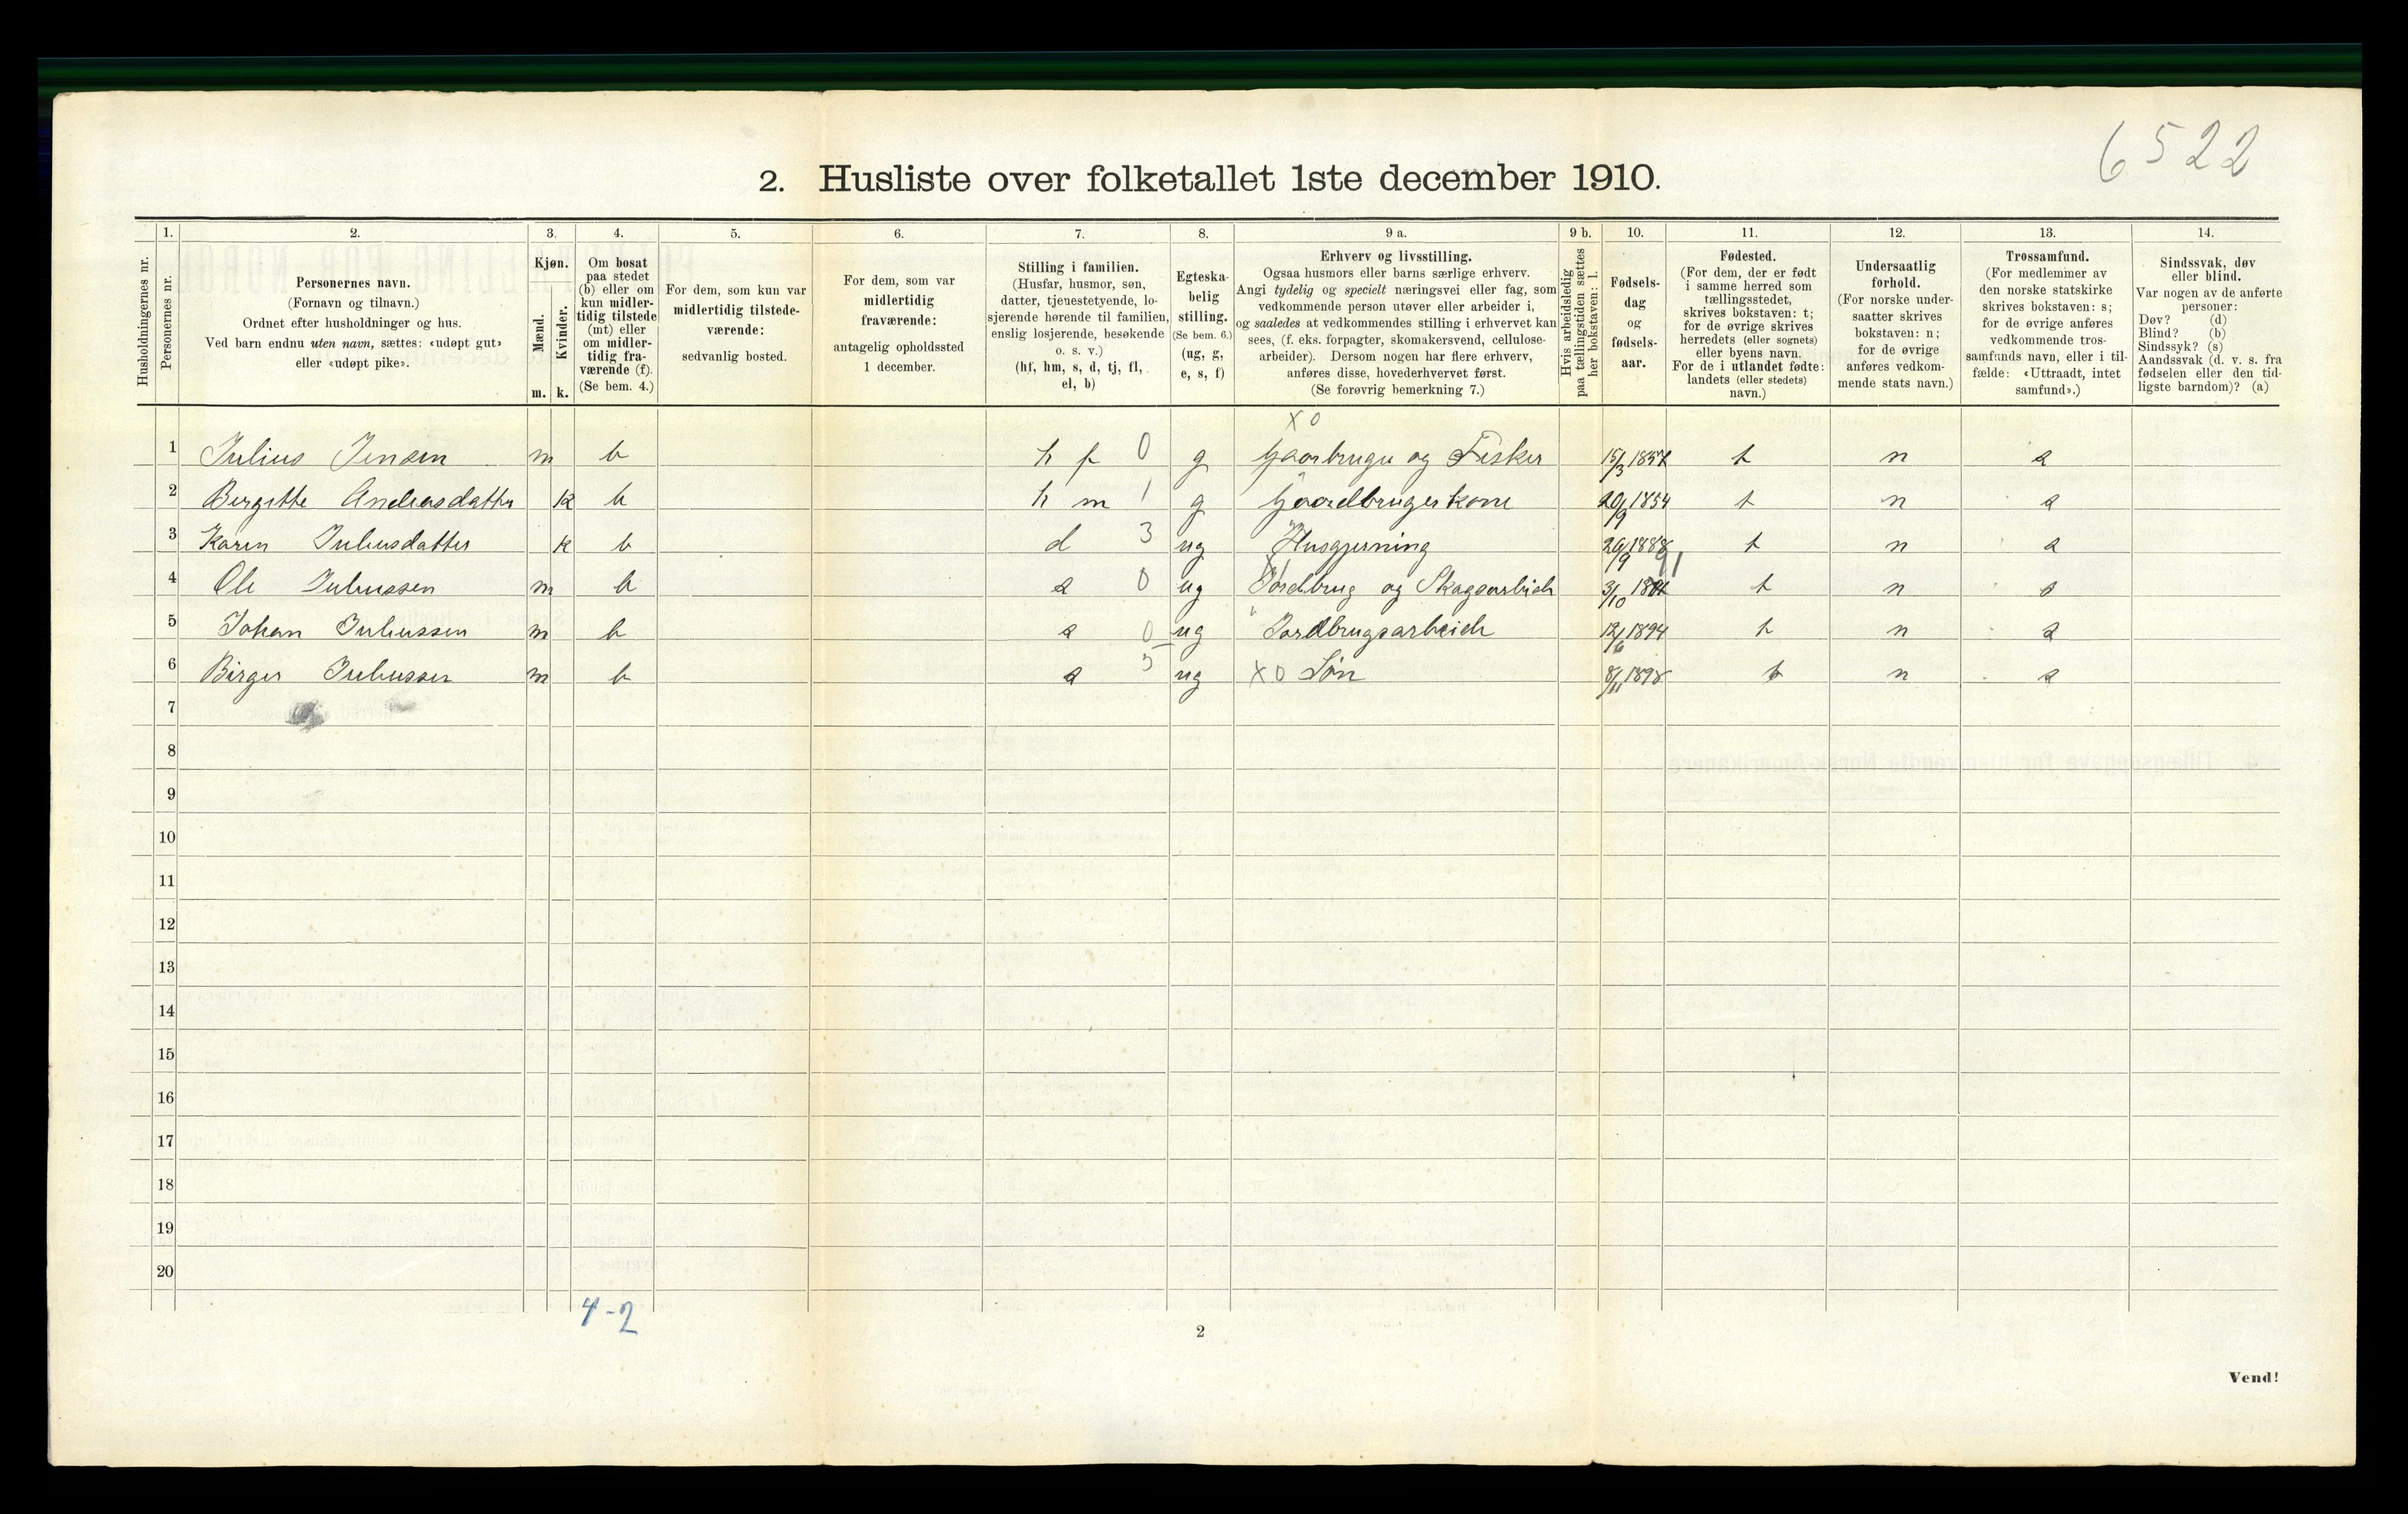 6522
2. Husliste over folketallet 1ste december 1910.
Husholdningernes nr.
1. Personernes nr.
2. Personernes navn.
(Fornavn og tilnavn.)
Ordnet efter husholdninger og hus.
Ved barn endnu uten navn, sættes: «udøpt gut»
eller «udøpt pike».
3. Kjøn.
Mænd. m.
Kvinder. k.
4. Om bosat
paa stedet
(b) eller om
kun midler-
tidig tilstede
(mt) eller
om midler-
tidig fra-
værende (f).
(Se bem. 4.)
5. For dem, som kun var
midlertidig tilstede-
værende:
sedvanlig bosted.
6. For dem, som var
midlertidig
fraværende:
antagelig opholdssted
1 december.
7. Stilling i familien.
(Husfar, husmor, søn,
datter, tjenestetyende, lo-
sjerende hørende til familien,
enslig losjerende, besøkende
o. s. v.)
(hf, hm, s, d, tj, fl,
el, b)
8. Egteska-
belig
stilling.
(Se bem. 6.)
(ug, g,
e, s, f)
9 a. Erhverv og livsstilling.
Ogsaa husmors eller barns særlige erhverv.
Angi tydelig og specielt næringsvei eller fag, som
vedkommende person utøver eller arbeider i,
og saaledes at vedkommendes stilling i erhvervet kan
sees, (f. eks. forpagter, skomakersvend, cellulose-
arbeider). Dersom nogen har flere erhverv,
anføres disse, hovederhvervet først.
(Se forøvrig bemerkning 7.)
9 b. Hvis arbeidsledig
paa tællingstiden sættes
her bokstaven: l.
10. Fødsels-
dag
og
fødsels-
aar.
11. Fødested.
(For dem, der er født
i samme herred som
tællingsstedet,
skrives bokstaven: t;
for de øvrige skrives
herredets (eller sognets)
eller byens navn.
For de i utlandet fødte:
landets (eller stedets)
navn.)
12. Undersaatlig
forhold.
(For norske under-
saatter skrives
bokstaven: n;
for de øvrige
anføres vedkom-
mende stats navn.)
13. Trossamfund.
(For medlemmer av
den norske statskirke
skrives bokstaven: s;
for de øvrige anføres
vedkommende tros-
samfunds navn, eller i til-
fælde: «Uttraadt, intet
samfund».)
14. Sindssvak, døv
eller blind.
Var nogen av de anførte
personer:
Døv? (d)
Blind? (b)
Sindssyk? (s)
Aandssvak (d. v. s. fra
fødselen eller den tid-
ligste barndom)? (a)
X 0
1 Julius Jensen m b h f 0 g Gaarbruger og Fisker 15/3 185 t n s
2 Bergitte Andreasdatter k b h m 1 g Gaardbrugerkone 20/9 1854 t n s
3 Karen Juliusdatter k b d 3 ug Husgjerning 20/9 1888 t n s
4 Ole Juliussen m b s 0 ug Jordbrug og Skogsarbeide 3/10 91 t n s
5 Johan Juliussen m b s 0 ug Jordbrugsarbeide 12/6 1894 t n s
6 Birger Juliussen m b s 5 ug X 0 Søn 8/11 1898 t n s
7
8
9
10
11
12
13
14
15
16
17
18
19
20
4-2
2
Vend!